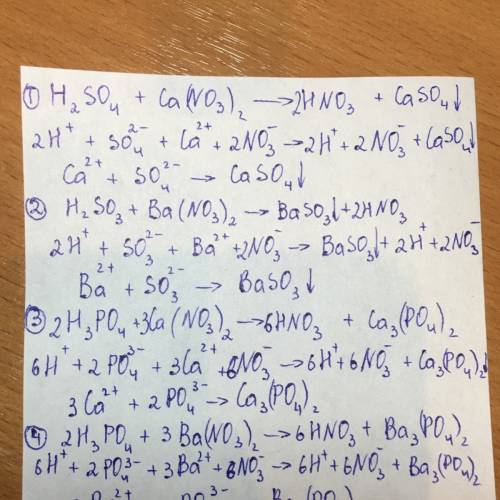 ① H₂SO₄ + Ca(NO₃)₂ → 2HNO₃ + CaSO₄↓
2H⁺ + SO₄²⁻ + Ca²⁺ + 2NO₃⁻ → 2H⁺ + 2NO₃⁻ + CaSO₄↓
Ca²⁺ + SO₄²⁻ → CaSO₄↓
② H₂SO₃ + Ba(NO₃)₂ → BaSO₃↓ + 2HNO₃
2H⁺ + SO₃²⁻ + Ba²⁺ + 2NO₃⁻ → BaSO₃↓ + 2H⁺ + 2NO₃⁻
Ba²⁺ + SO₃²⁻ → BaSO₃↓
③ 2H₃PO₄ + 3Ca(NO₃)₂ → 6HNO₃ + Ca₃(PO₄)₂
6H⁺ + 2PO₄³⁻ + 3Ca²⁺ + 6NO₃⁻ → 6H⁺ + 6NO₃⁻ + Ca₃(PO₄)₂↓
3Ca²⁺ + 2PO₄³⁻ → Ca₃(PO₄)₂
④ 2H₃PO₄ + 3Ba(NO₃)₂ → 6HNO₃ + Ba₃(PO₄)₂
6H⁺ + 2PO₄³⁻ + 3Ba²⁺ + 6NO₃⁻ → 6H⁺ + 6NO₃⁻ + Ba₃(PO₄)₂